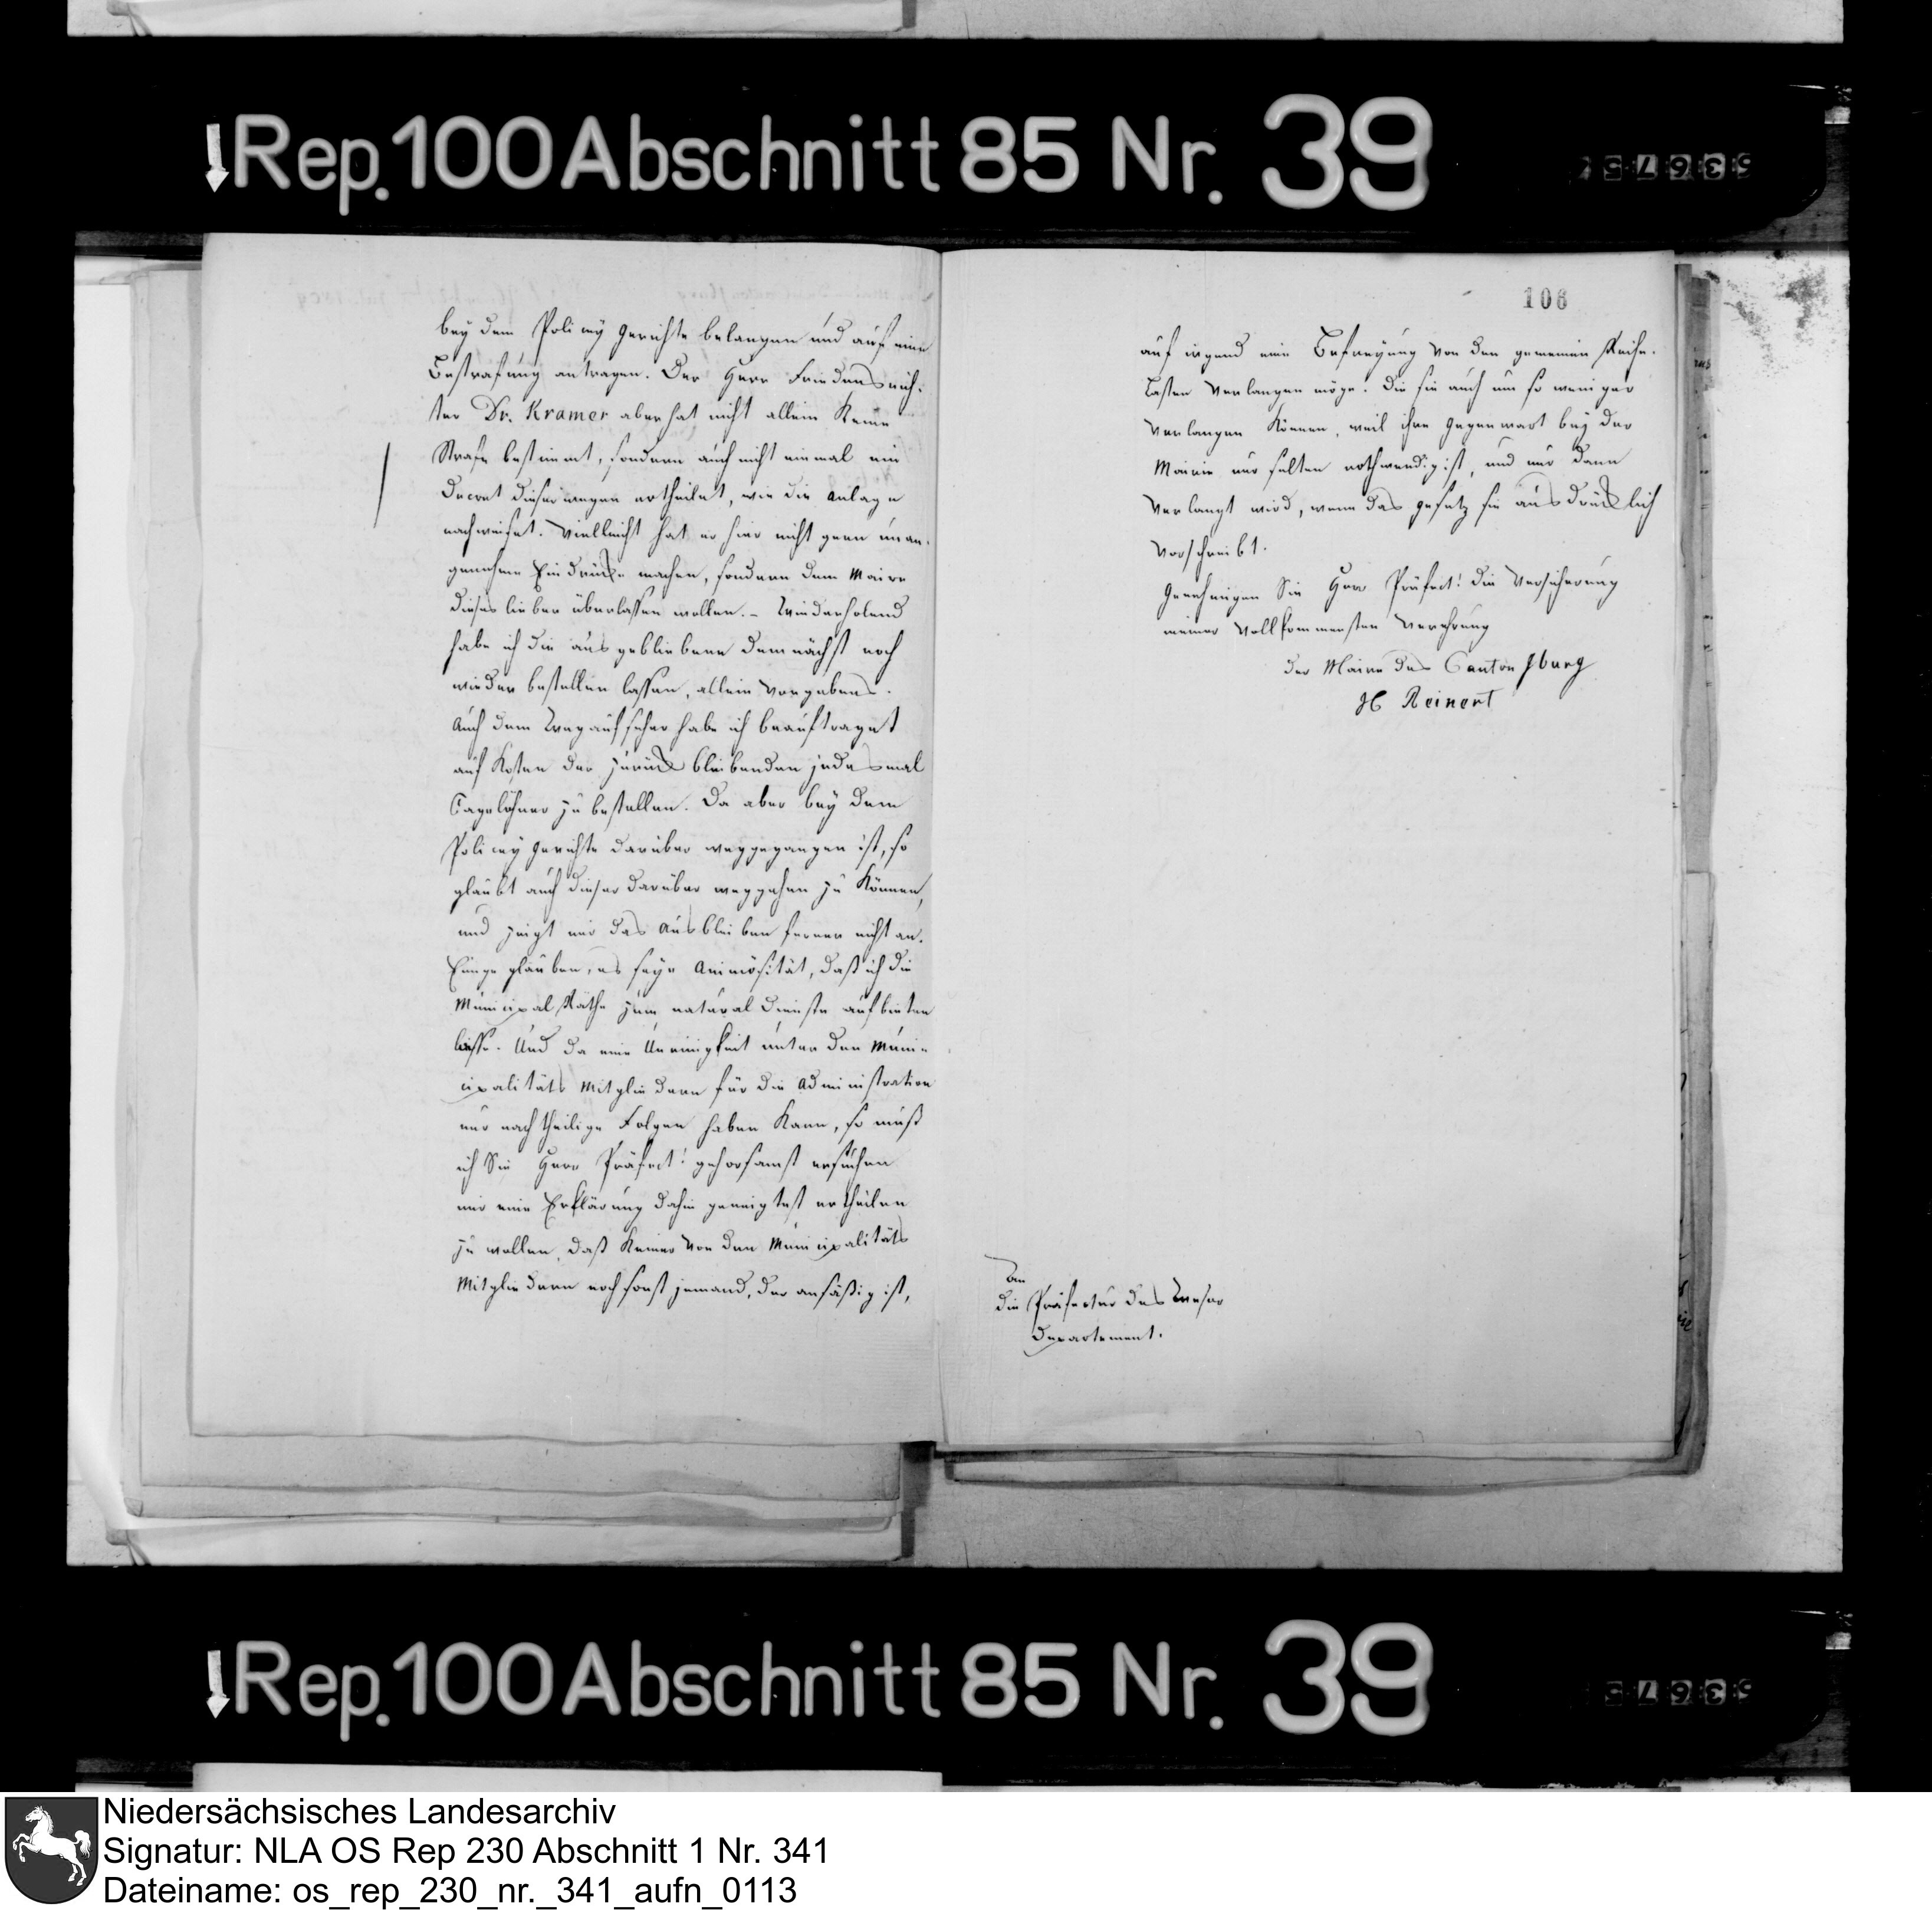 Rep. 100 Abschnitt 85 Nr. 39
bey dem Policey Gerichte belangen und auf eine
Bestrafung antragen. Der Herr Friedensrich-
ter Dr. Kramer aber hat nicht allein keine
Strafe bestimmt, sondern auch nicht einmal ein
Decret dieserwegen ertheilet, wie die Anlage
nachweiset. Vielleicht hat er hier nicht gern unan-
genehme Eindrücke machen, sondern dem Maire
dieses lieber überlassen wollen. – Wiederholend
habe ich die ausgebliebene demnächst noch
wieder bestellen lassen, allein vergebens.
Auch dem Wegaufseher habe ich beauftraget
auf Kosten der zurückbleibenden jedesmal
Tagelöhner zu bestellen. Da aber bey dem
Policey Gerichte darüber weggegangen ist, so
glaubt auch dieser darüber weggehen zu können,
und zeigt mir das Ausbleiben ferner nicht an.
Einige glauben, es seye Animösität, daß ich die
Municipal Räthe zum natural Dienste aufbieten
lasse. Und da eine Uneinigkeit unter den Muni-
cipalitäts Mitgliedern für die Administration
nur nachtheilige Folgen haben kann, so muß
ich Sie Herr Präfect! gehorsamst ersuchen
mir eine Erklärung dahin geneigtest ertheilen
zu wollen, daß keiner von den Municipalitäts
Mitgliedern noch sonst jemand, der ansäßig ist,
106
auf irgend eine Befreyung von den gemeinen Reihe-
Lasten verlangen möge. Die sie auch um so weniger
verlangen können, weil ihre Gegenwart bey der
Mairie nur selten nothwendig ist, und nur dann
verlangt wird, wenn das Gesetz sie ausdrücklich
vorschreibt.
Genehmigen Sie Herr Präfect! die Versicherung
meiner vollkommensten Verehrung
der Maire des Canton Iburg
H Reinert
An
die Präfectur des Weser
Departement.
Rep. 100 Abschnitt 85 Nr. 39
Niedersächsisches Landesarchiv
Signatur: NLA OS Rep 230 Abschnitt 1 Nr. 341
Dateiname: os_rep_230_nr._341_aufn_0113